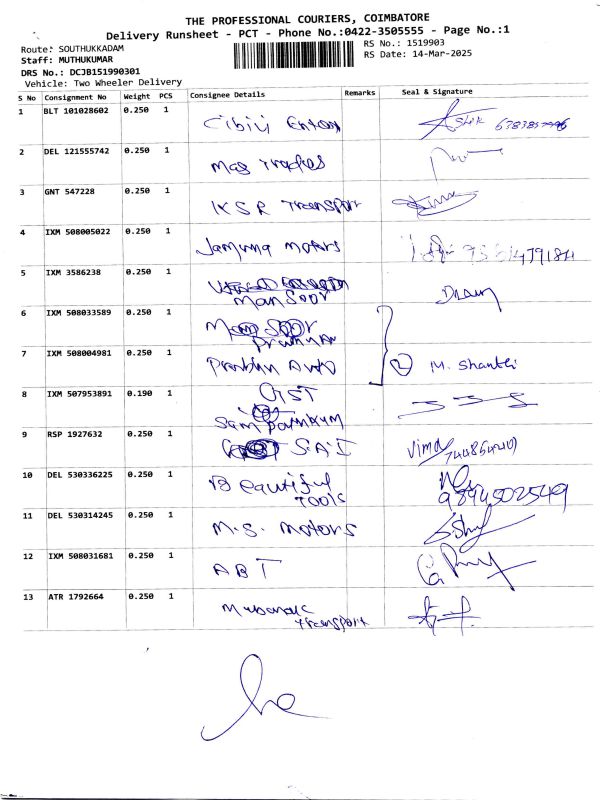 THE PROFESSIONAL COURIERS, COIMBATORE
Delivery Runsheet - PCT - Phone No.:0422-3505555 - Page No.:1
Route: SOUTHUKKADAM
RS No.: 1519903
Staff: MUTHUKUMAR
RS Date: 14-Mar-2025
DRS No.: DCJB151990301
Vehicle: Two Wheeler Delivery
S No Consignment No Weight PCS Consignee Details Remarks Seal & Signature
1 BLT 101028602 0.250 1
2 DEL 121555742 0.250 1 Mas Trades
3 GNT 547228 0.250 1 KSR Transport
4 IXM 508005022 0.250 1 Jamuna Motors
5 IXM 3586238 0.250 1
Mansoor
6 IXM 508033589 0.250 1
7 IXM 508004981 0.250 1 Auto 2 M. Shanthi
8 IXM 507953891 0.190 1 GST
9 RSP 1927632 0.250 1 S.A.I Vimal
10 DEL 530336225 0.250 1 Beautiful
Tools 9894502549
11 DEL 530314245 0.250 1 M.S. Motors
12 IXM 508031681 0.250 1 ABT
13 ATR 1792664 0.250 1 Mubarak
Transport